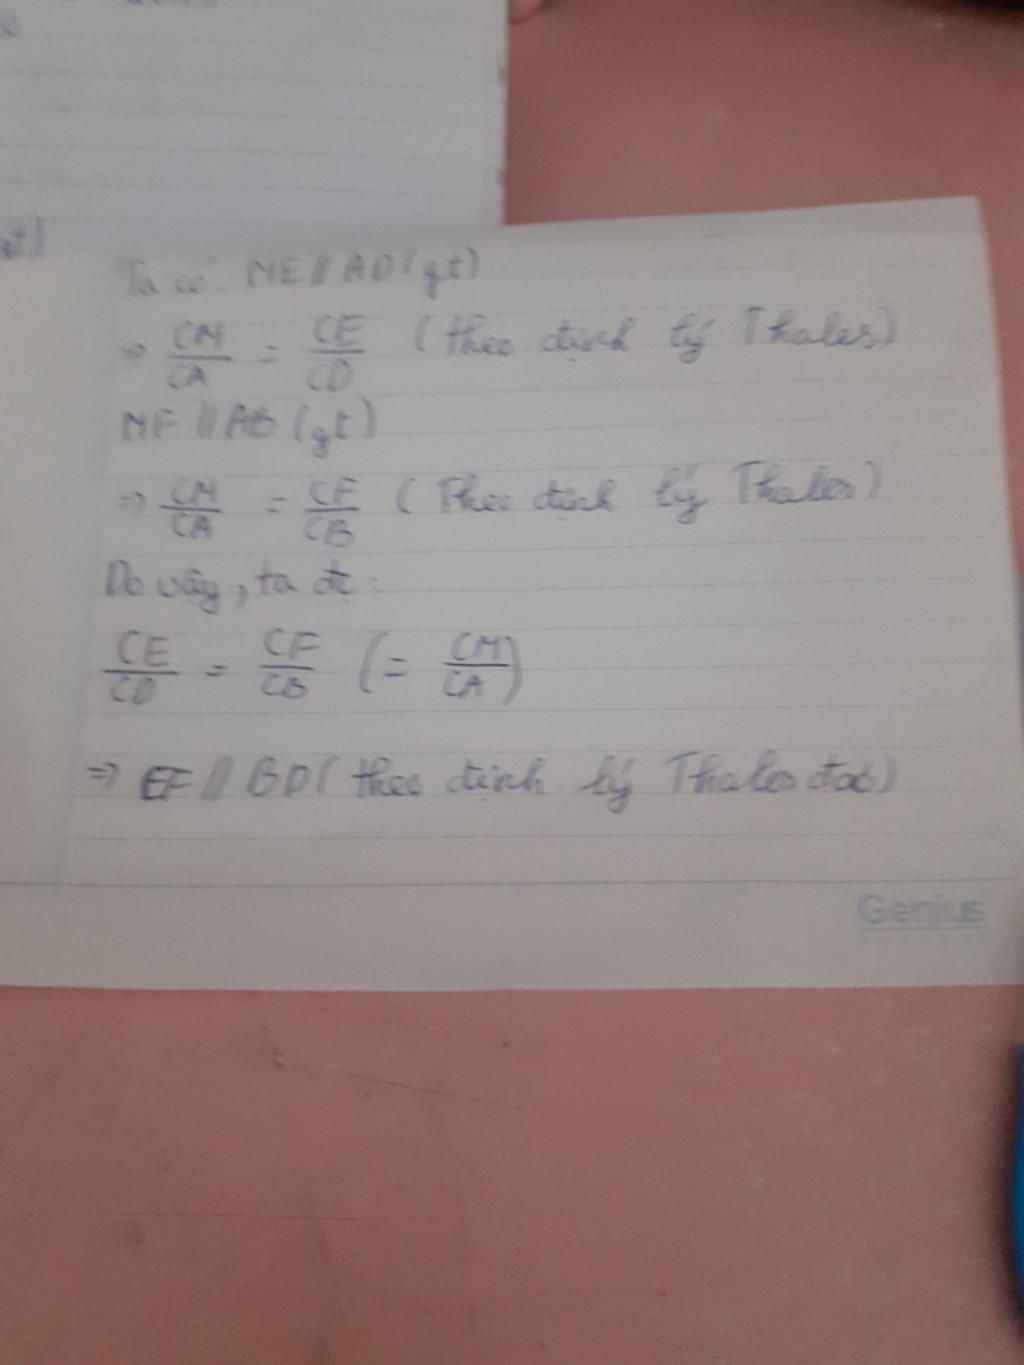 gt)
Ta có: ME // AD (gt)
⇒ CM/CA = CE/CD (theo định lý Thales)
MF // AB (gt)
⇒ CM/CA = CF/CB (Theo định lý Thales)
Do vậy, ta đc:
CE/CD = CF/CB (= CM/CA)
⇒ EF // BD (theo định lý Thales đảo)
Genius